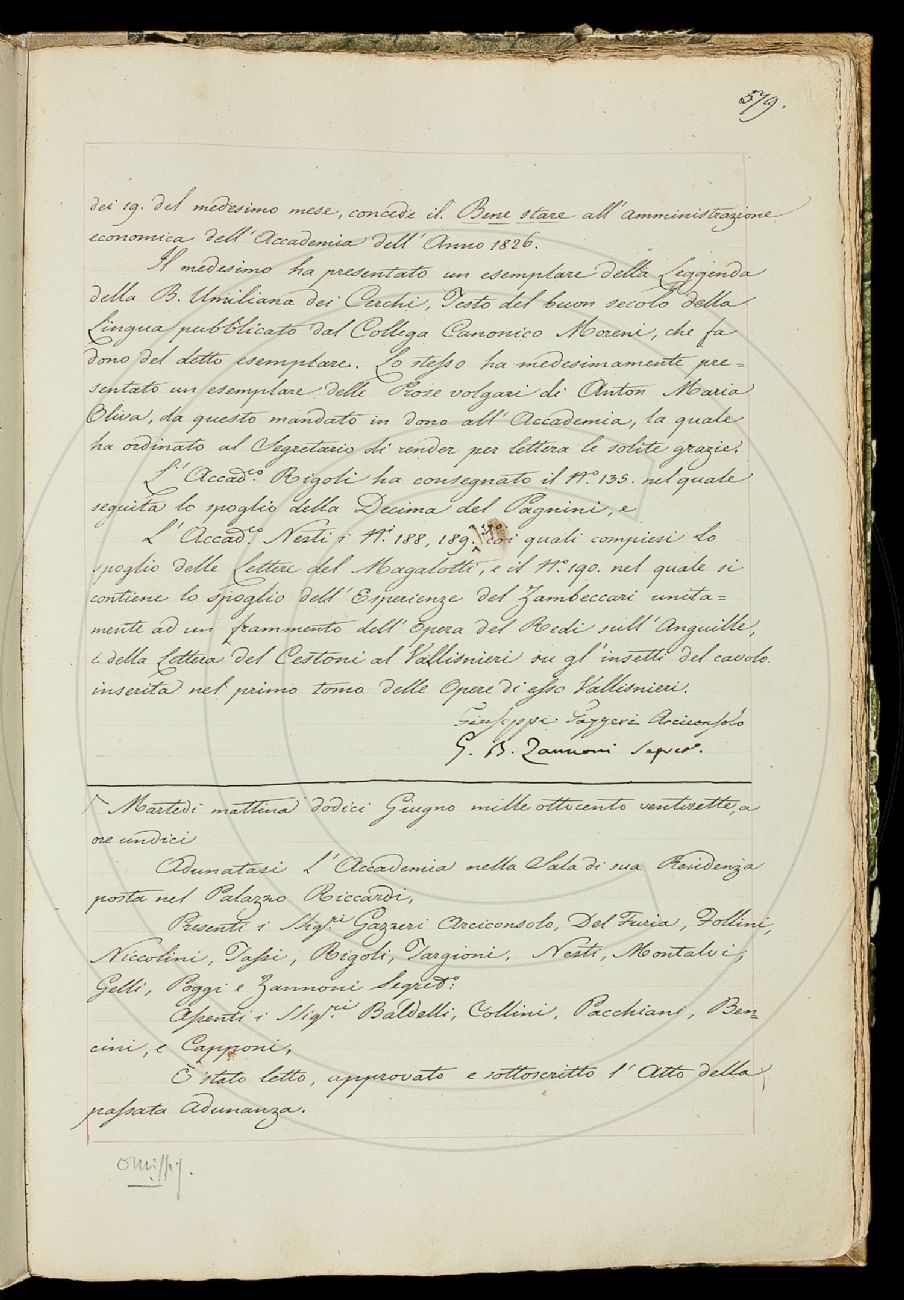 579.
dei 19. del medesimo mese, concede il Bene stare all'amministrazione
economica dell'Accademia dell'Anno 1826.
Il medesimo ha presentato un esemplare della Leggenda
della B. Umiliana dei Cerchi, Testo del buon secolo della
Lingua pubblicato dal Collega Canonico Moreni, che fa
dono del detto esemplare. Lo stesso ha medesimamente pre=
sentato un esemplare delle Prose volgari di Anton Maria
Oliva, da questo mandato in dono all'Accademia, la quale
ha ordinato al Segretario di render per lettera le solite grazie.
L'Accad.co Rigoli ha consegnato il N.o 135. nel quale
seguita lo spoglio della Decima del Pagnini, e
L'Accad.co Nesti i N.i 188, 189. coi quali compiesi lo
spoglio delle Lettere del Magalotti, e il N.o 190. nel quale si
contiene lo spoglio dell'Esperienze del Zambeccari unita=
mente ad un frammento dell'Opera del Redi sull'Anguille,
e della Lettera del Cestoni al Vallisnieri su gl'insetti del cavolo
inserita nel primo tomo delle Opere di esso Vallisnieri.
Giuseppe Gazzeri Arciconsolo
G. B. Zannoni Segret.
Martedì mattina dodici Giugno mille ottocento ventisette, a
ore undici
Adunatasi l'Accademia nella Sala di sua Residenza
posta nel Palazzo Riccardi,
Presenti i Sig.ri Gazzeri Arciconsolo, Del Furia, Follini,
Niccolini, Tassi, Rigoli, Targioni, Nesti, Montalvi,
Gelli, Poggi e Zannoni Segret.o
Assenti i Sig.ri Baldelli, Collini, Pacchiani, Ben=
cini, e Capponi,
È stato letto, approvato e sottoscritto l'Atto della
passata Adunanza.
omissis.